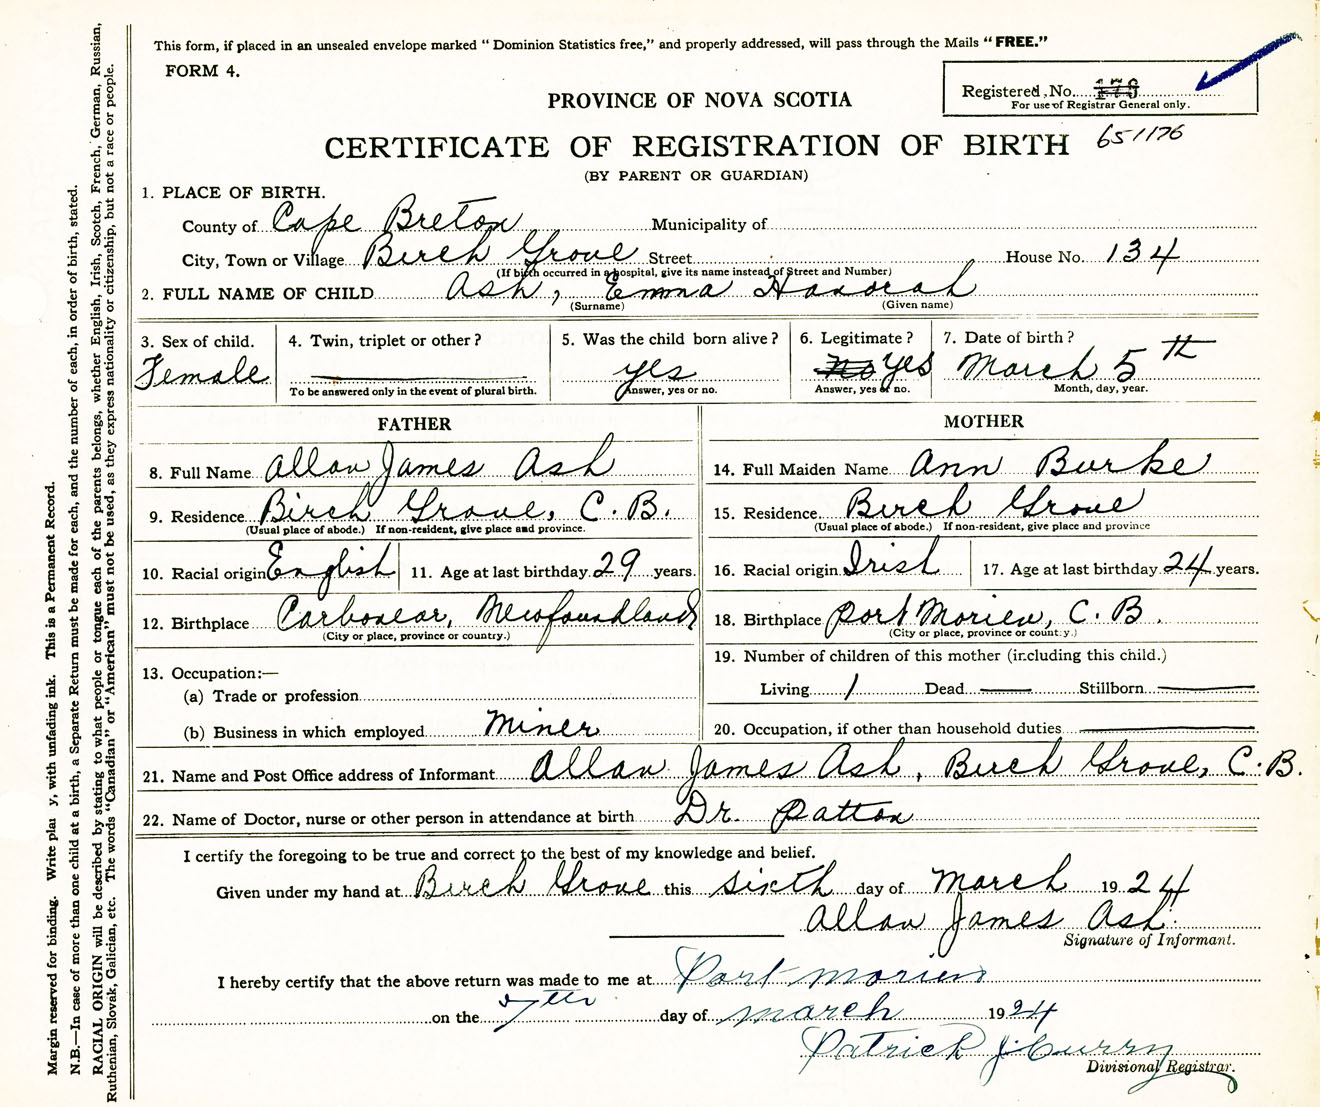 This form, if placed in an unsealed envelope marked "Dominion Statistics free," and properly addressed, will pass through the Mails "FREE."
FORM 4.
Registered No. 173
For use of Registrar General only.
PROVINCE OF NOVA SCOTIA
651176
CERTIFICATE OF REGISTRATION OF BIRTH
(BY PARENT OR GUARDIAN)
1. PLACE OF BIRTH.
County of Cape Breton Municipality of
City, Town or Village Birch Grove Street House No. 134
(If birth occurred in a hospital, give its name instead of Street and Number)
2. FULL NAME OF CHILD Ash, Emma Honorah
(Surname) (Given name)
3. Sex of child. 4. Twin, triplet or other? 5. Was the child born alive? 6. Legitimate? 7. Date of birth?
Female yes no yes March 5th
To be answered only in the event of plural birth. Answer, yes or no. Answer, yes or no. Month, day, year.
FATHER
8. Full Name Allan James Ash
9. Residence Birch Grove, C.B.
(Usual place of abode.) If non-resident, give place and province.
10. Racial origin English 11. Age at last birthday 29 years.
12. Birthplace Carbonear, Newfoundland
(City or place, province or country.)
13. Occupation:—
(a) Trade or profession
(b) Business in which employed Miner
MOTHER
14. Full Maiden Name Ann Burke
15. Residence Birch Grove
(Usual place of abode.) If non-resident, give place and province
16. Racial origin Irish 17. Age at last birthday 24 years.
18. Birthplace Port Morien, C.B.
(City or place, province or country.)
19. Number of children of this mother (including this child.)
Living 1 Dead — Stillborn —
20. Occupation, if other than household duties —
21. Name and Post Office address of Informant Allan James Ash, Birch Grove, C.B.
22. Name of Doctor, nurse or other person in attendance at birth Dr. Patton
I certify the foregoing to be true and correct to the best of my knowledge and belief.
Given under my hand at Birch Grove this sixth day of March 1924
Allan James Ash.
Signature of Informant.
I hereby certify that the above return was made to me at Port Morien
on the 7th day of March 1924
Patrick J. Curry
Divisional Registrar.
Margin reserved for binding. Write plai y, with unfading ink. This is a Permanent Record.
N.B.—In case of more than one child at a birth, a Separate Return must be made for each, and the number of each, in order of birth, stated.
RACIAL ORIGIN will be described by stating to what people or tongue each of the parents belongs, whether English, Irish, Scotch, French, German, Russian,
Ruthenian, Slovak, Galician, etc. The words "Canadian" or "American" must not be used, as they express nationality or citizenship, but not a race or people.